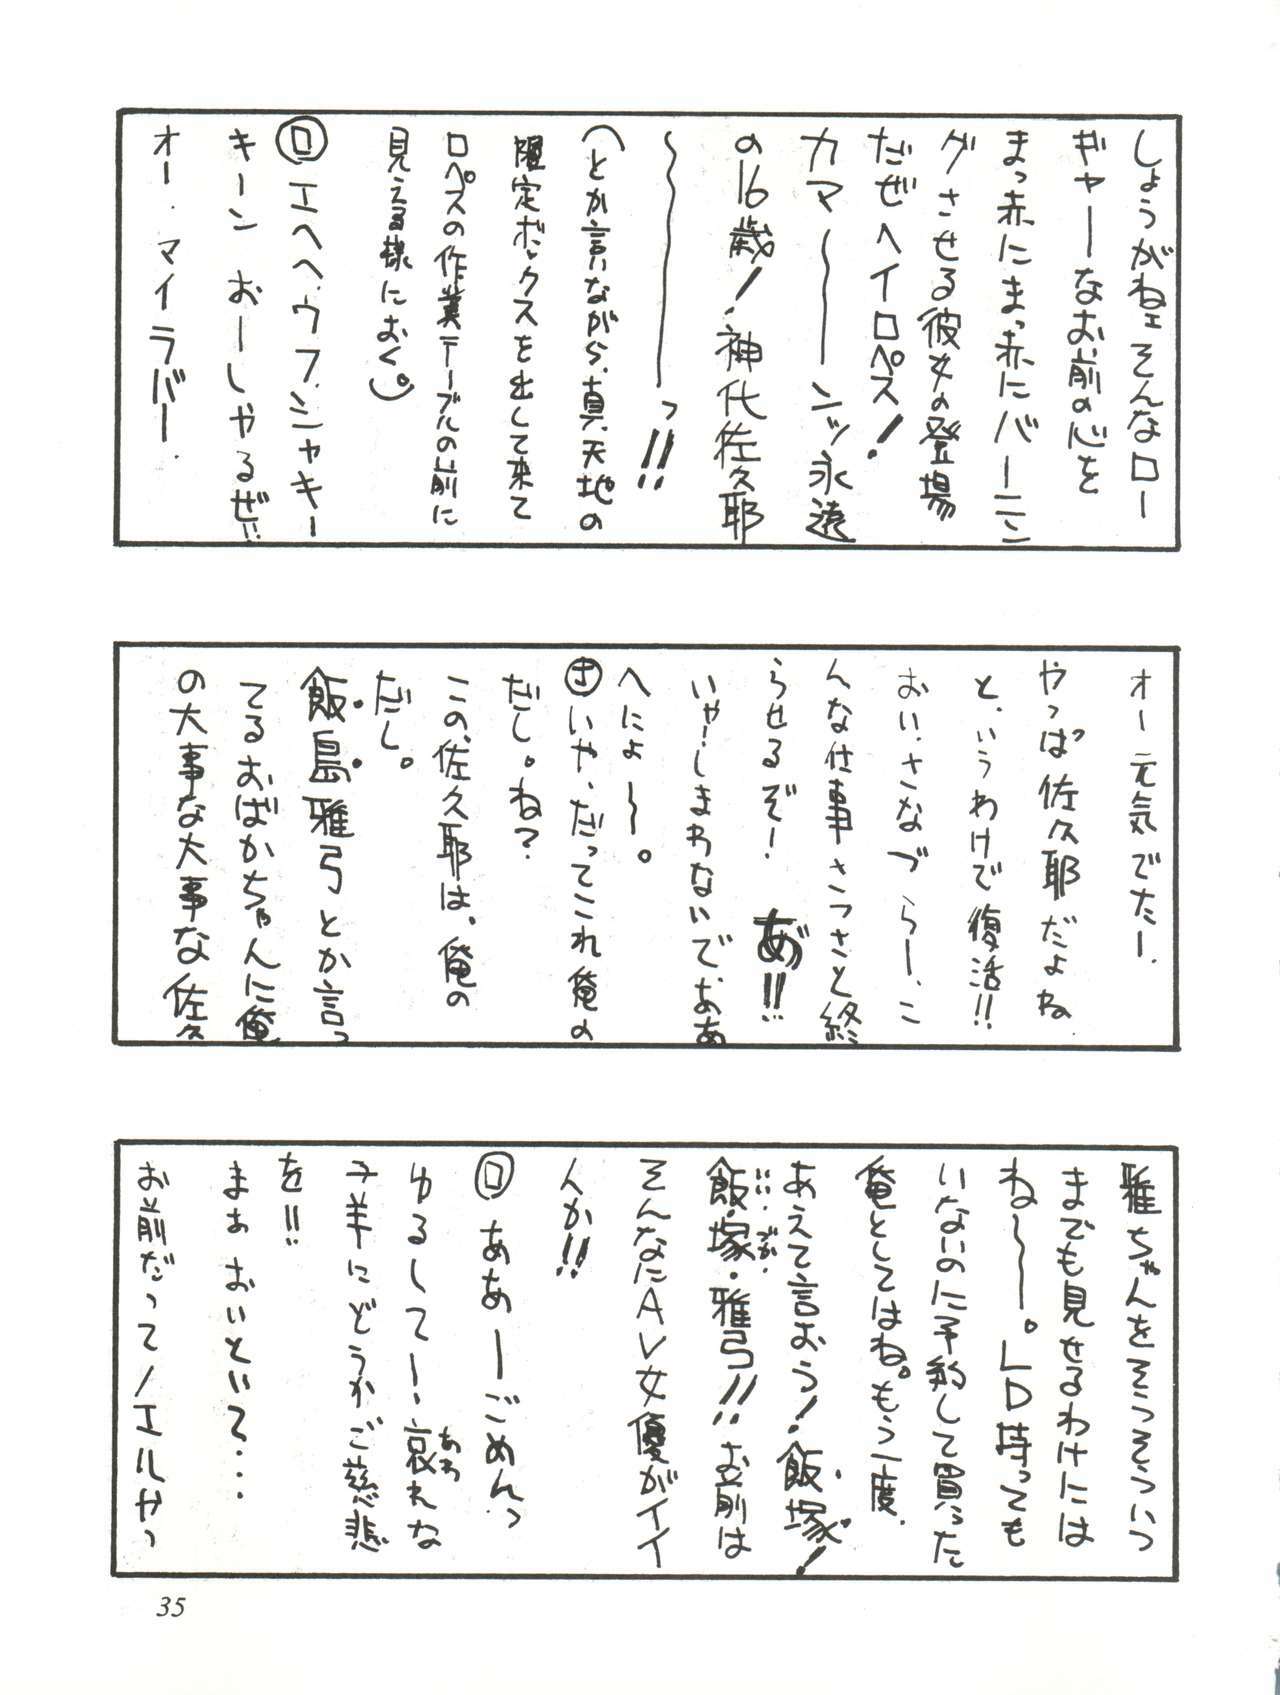 しょうがねェそんなロー
ギャーなお前の心を
まっ赤にまっ赤にバーニン
グさせる彼女の登場
だぜヘイロペス！
カマ〜〜ンッ永遠
の16歳！神代佐久耶
〜〜〜〜っ!!
（とか言いながら、真・天地の
限定ボックスを出して来て
ロペスの作業テーブルの前に
見える様におく。）
ロ エヘヘ、ウフ、シャキー
キーン おーしゃるぜ!!
オー．マイラバー．
オー元気でたー．
やっぱ佐久耶だよね
と、いうわけで復活!!
おい、さなづらー、こ
んな仕事さっさと終
らせるぞー！ あ゛!!
いやーしまわないでぉぁ
へにょ〜。
さ いや、だってこれ俺の
だし。ね？
この、佐久耶は、俺の
だし。
飯島雅弓とか言っ
てるおばかちゃんに俺
の大事な大事な佐久
雅ちゃんをそうそういつ
までも見せるわけには
ね〜〜。LD持っても
いないのに予約して買った
俺としてはね。もう一度．
あえて言おう！飯塚！
飯・塚・雅弓!! お前は
いい・づか・
そんなにAV女優がイイ
んか!!
ロ ああーごめんっ
ゆるしてー、哀れな
あわ
子羊にどうかご慈悲
を!!
まぁ おいといて・・・
お前だってノエルやっ
35